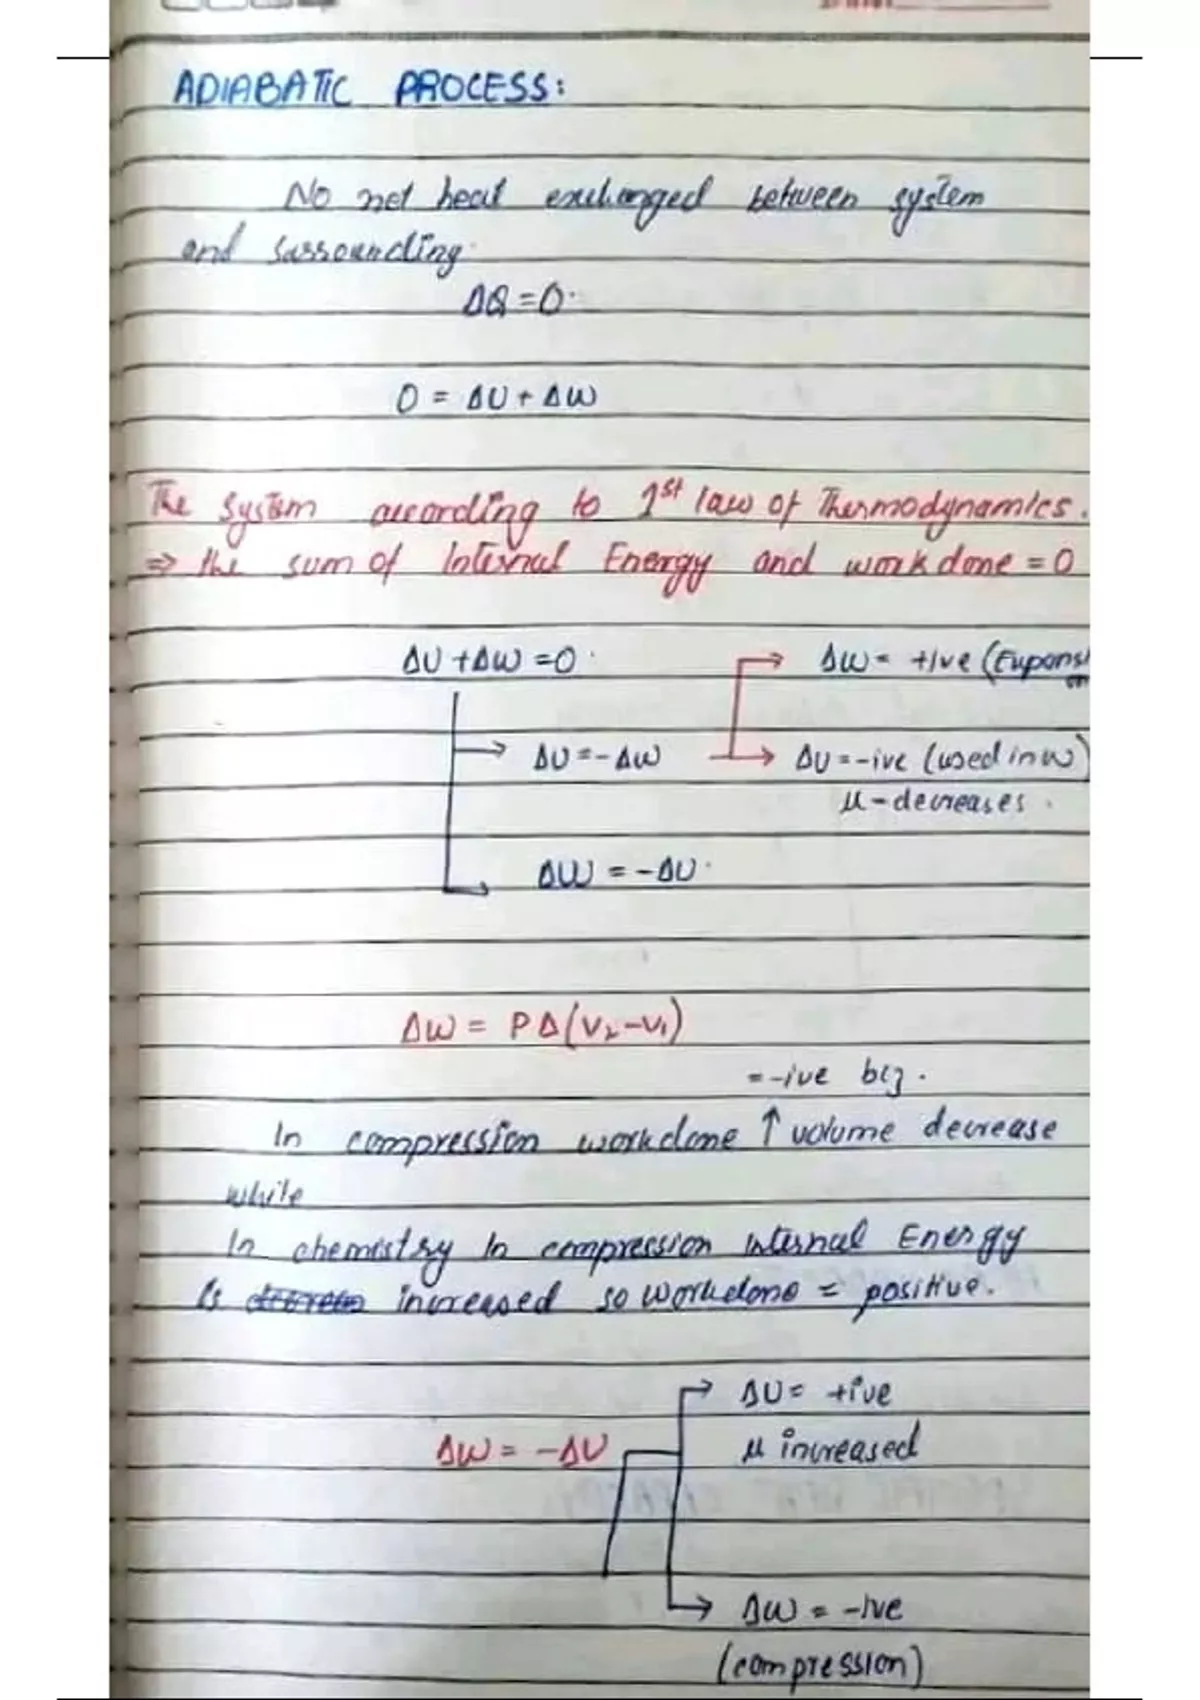 ADIABATIC PROCESS:
No net heat exchanged between system
and surrounding.
ΔQ = 0.
0 = ΔU + ΔW
The system according to 1st law of Thermodynamics.
⇒ the sum of Internal Energy and workdone = 0
ΔU + ΔW = 0. → ΔW = +ive (Expansion
→ ΔU = -ΔW → ΔU = -ive (used in W)
μ - decreases.
→ ΔW = -ΔU.
ΔW = PΔ(V₂-V₁)
= -ive bcz.
In compression workdone ↑ volume decrease
while
In chemistry In compression internal Energy
is increased so workdone = positive.
→ ΔU = +ive
ΔW = -ΔU μ increased
→ ΔW = -ive
(compression)